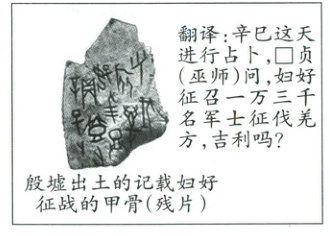 翻译:辛巳这天
进行占卜,□贞
(巫师)问,妇好
征召一万三千
名军士征伐羌
方,吉利吗?
殷墟出土的记载妇好
征战的甲骨(残片)